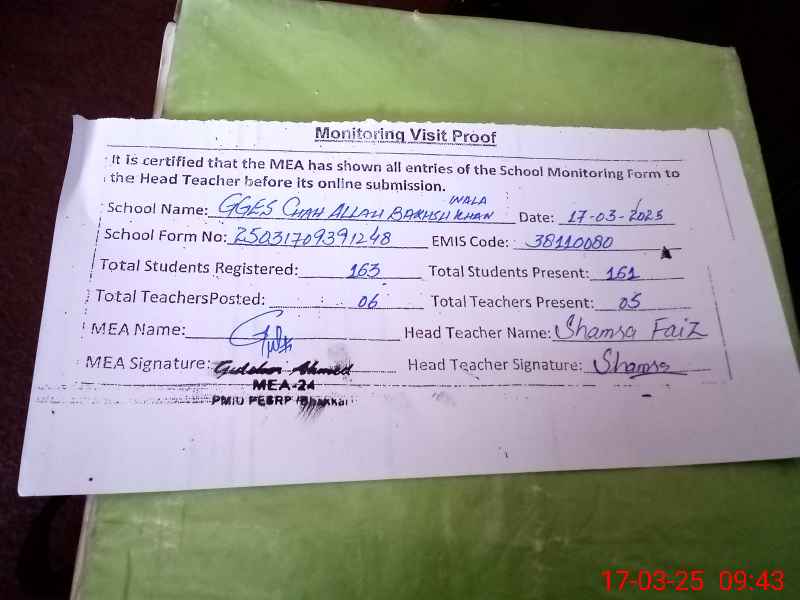 Monitoring Visit Proof
It is certified that the MEA has shown all entries of the School Monitoring Form to
the Head Teacher before its online submission.
School Name: GGES CHAH ALLAH BAKHSH KHAN WALA Date: 17-03-2025
School Form No: 25031709391248 EMIS Code: 38110080
Total Students Registered: 163 Total Students Present: 161
Total TeachersPosted: 06 Total Teachers Present: 05
MEA Name: Head Teacher Name: Shamsa Faiz
MEA Signature: Ahmed Head Teacher Signature: Shamsa
MEA-24
PMIU PESRP /Bhakkar
17-03-25 09:43